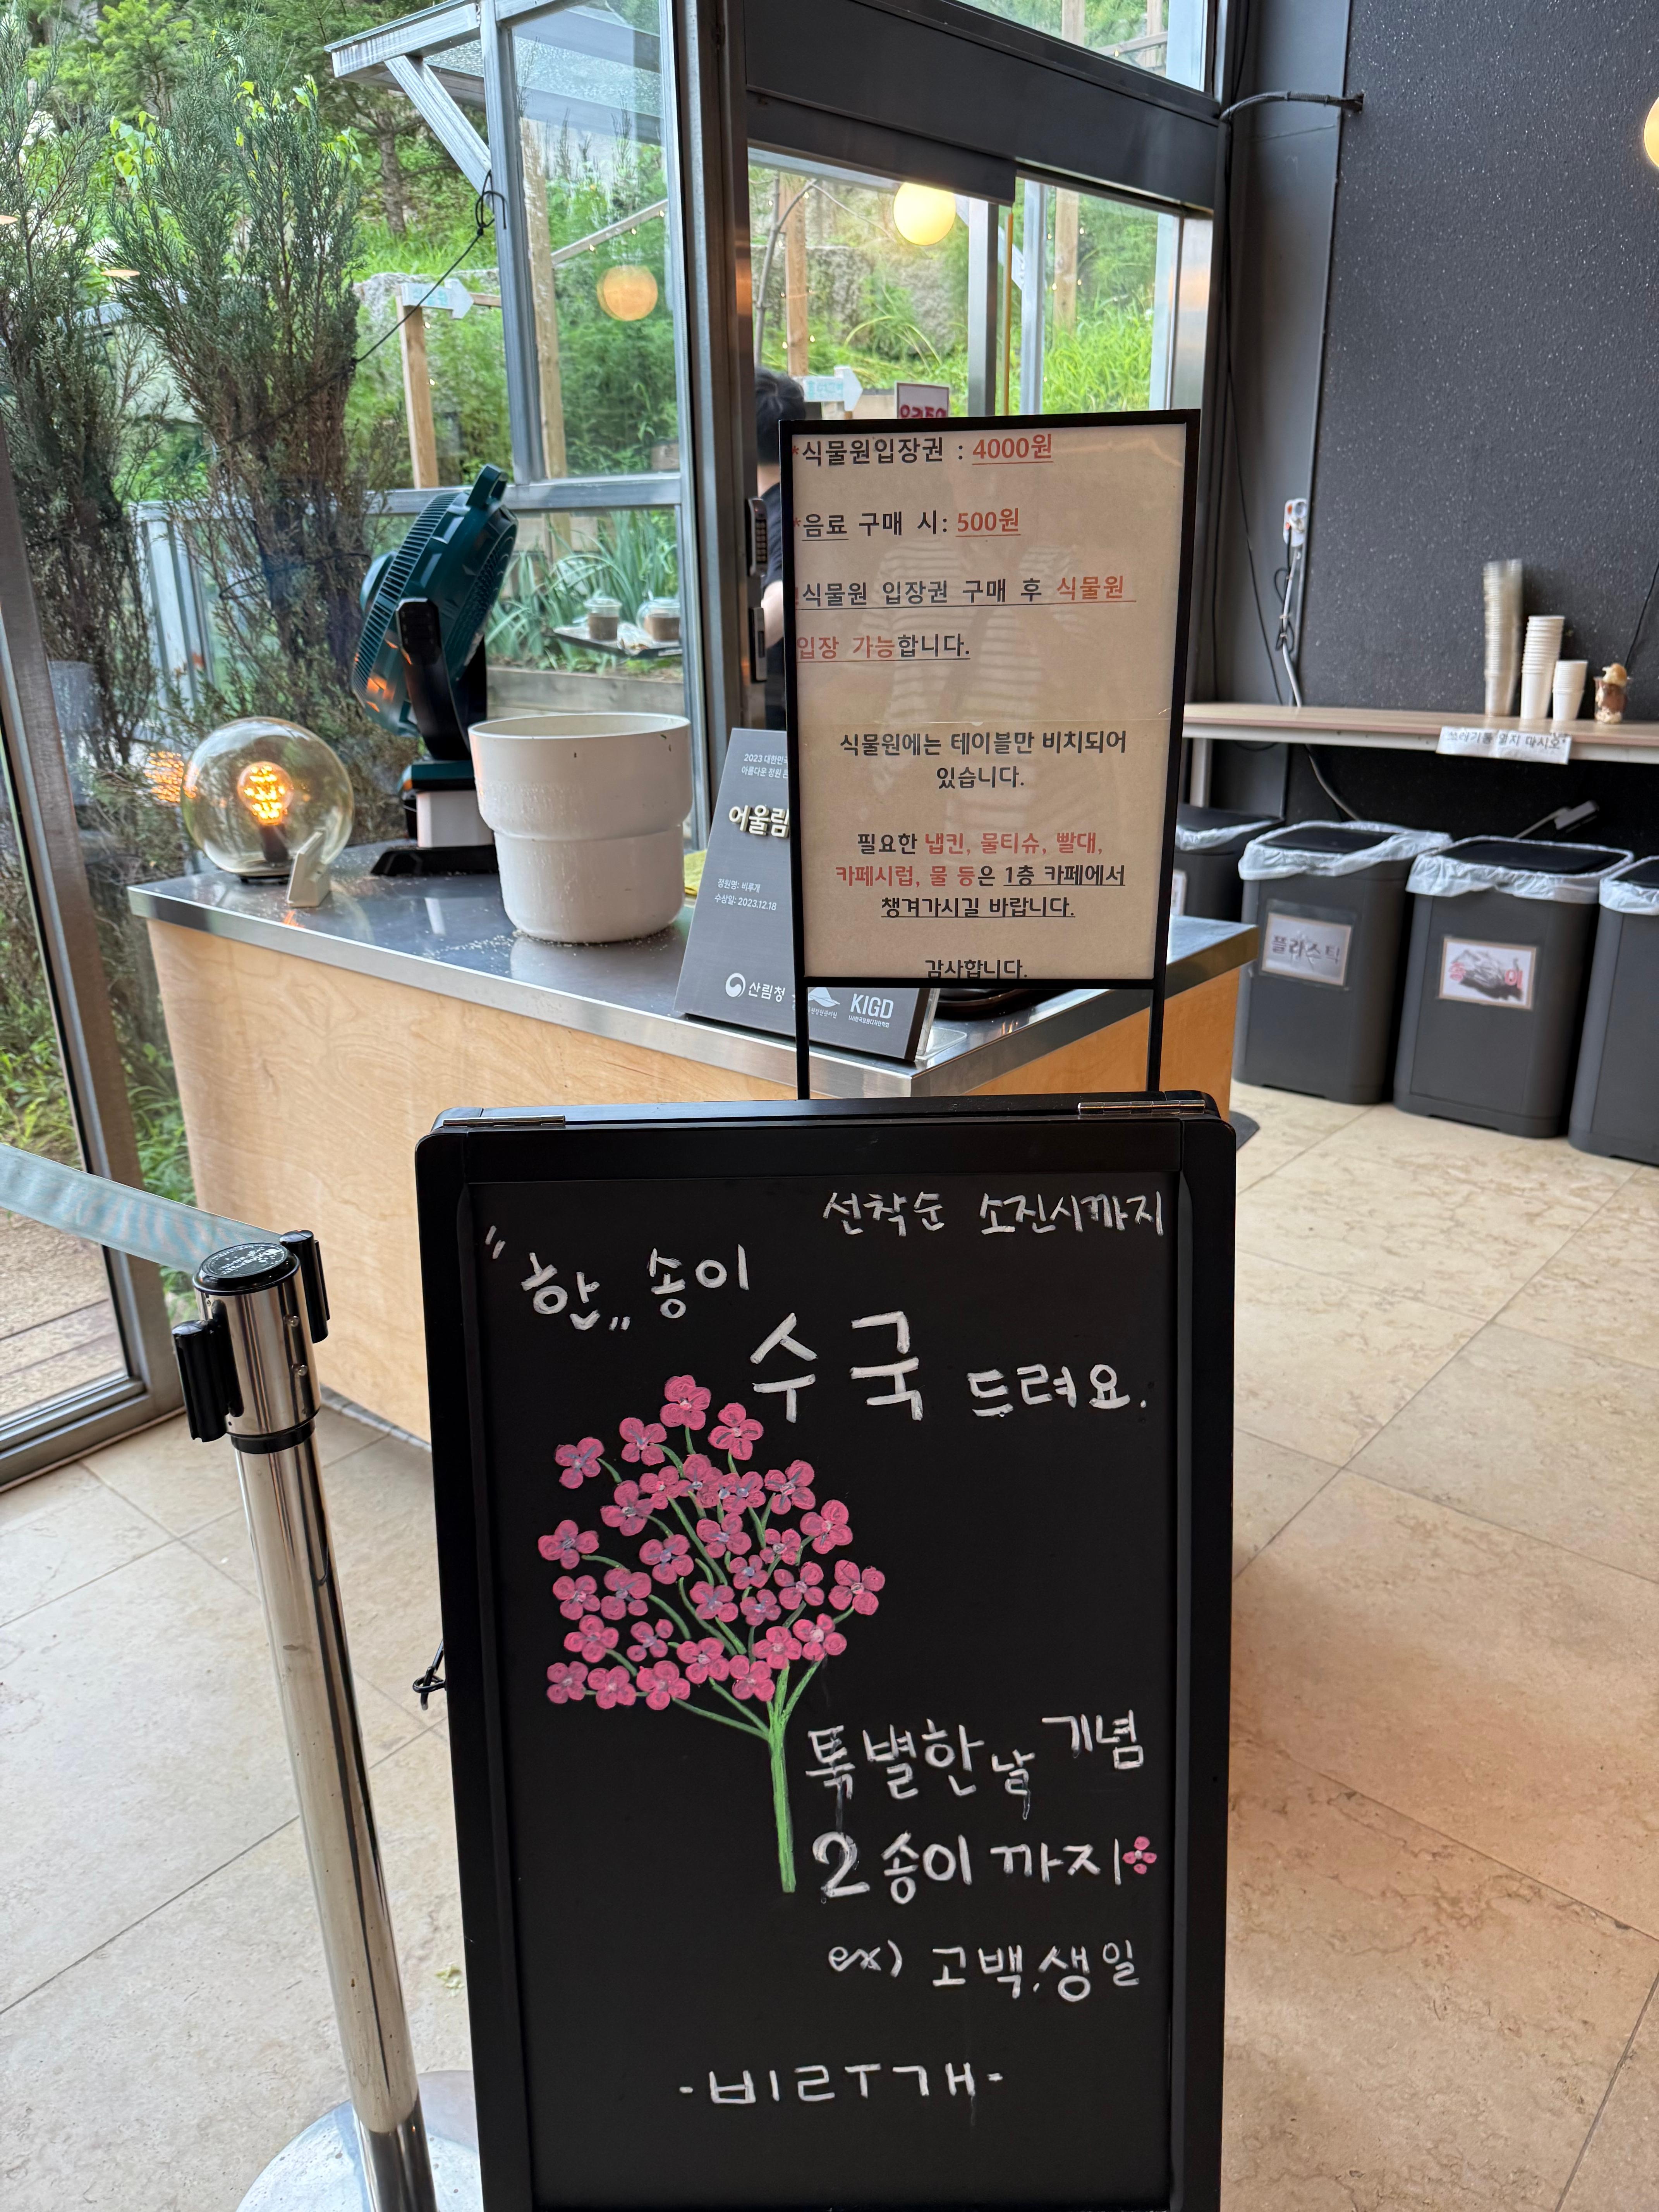 *식물원입장권 : 4000원
*음료 구매 시: 500원
식물원 입장권 구매 후 식물원
입장 가능합니다.
식물원에는 테이블만 비치되어
있습니다.
필요한 냅킨, 물티슈, 빨대,
카페시럽, 물 등은 1층 카페에서
챙겨가시길 바랍니다.
감사합니다.
2023 대한민국
아름다운 정원
어울림
정원명: 비루개
수상일: 2023.12.18
산림청
KIGD
쓰레기통 열지 마시오
플라스틱
종이
선착순 소진시까지
"한" 송이
수국 드려요.
특별한 날 기념
2송이 까지
ex) 고백, 생일
-비루개-